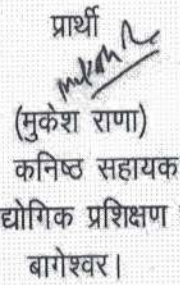 प्रार्थी
(मुकेश राणा)
कनिष्ठ सहायक
द्योगिक प्रशिक्षण
बागेश्वर।